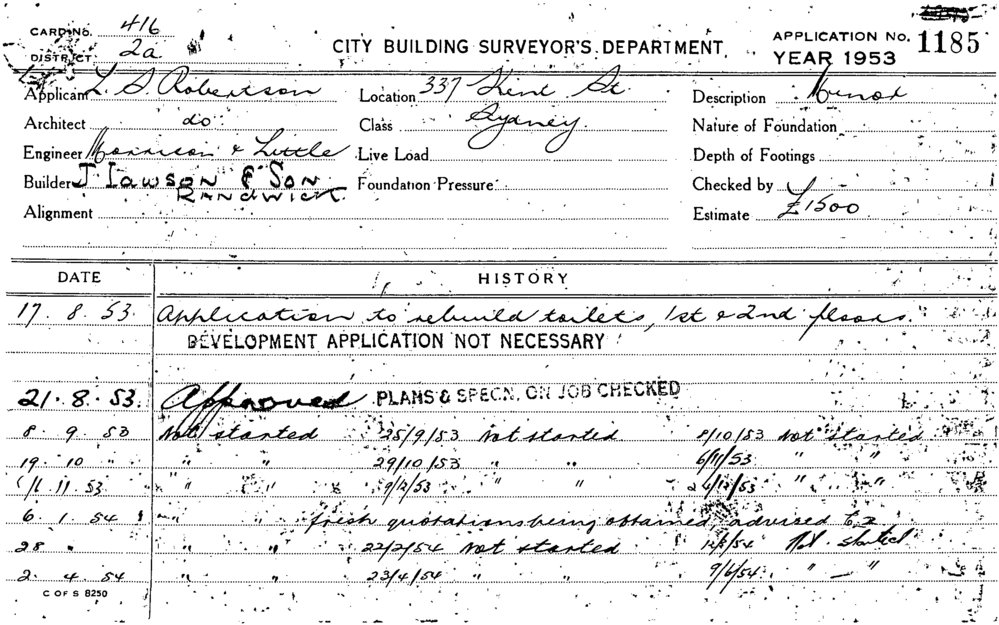 CARD No. 416
DISTRICT 2a
CITY BUILDING SURVEYOR'S DEPARTMENT
APPLICATION No. 1185
YEAR 1953
Applicant L. S. Robertson
Location 337 Kent St
Description Minor
Architect do
Class Sydney
Nature of Foundation
Engineer Morrison & Little
Live Load
Depth of Footings
Builder J. Lawson & Son
RANDWICK
Foundation Pressure
Checked by
Alignment
Estimate £1500
DATE HISTORY
17. 8. 53 Application to rebuild toilets, 1st & 2nd floors.
DEVELOPMENT APPLICATION NOT NECESSARY
21. 8. 53. Approved PLANS & SPECN. ON JOB CHECKED
8. 9. 53 Not started 25/9/53 Not started 8/10/53 Not started
19. 10 " " " 29/10/53 " " 6/11/53 " "
11. 53 " " 9/12/53 " " "
6. 1. 54 " " fresh quotations being obtained, advised
28 " " " 22/2/54 Not started Not started
2. 4. 54 " " 23/4/54 " " 9/6/54 " — "
C OF S 8250